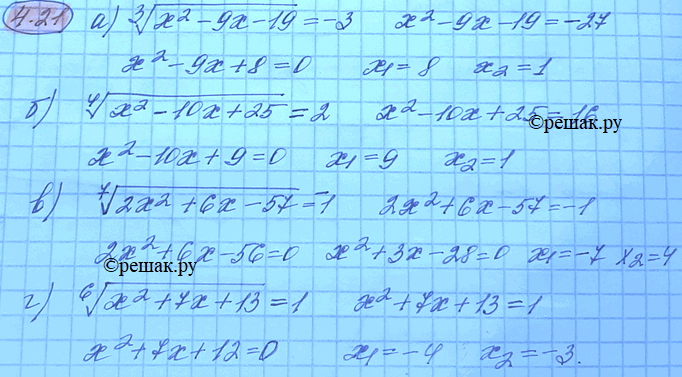 4.21 а) ∛(x² - 9x - 19) = -3   x² - 9x - 19 = -27
x² - 9x + 8 = 0   x₁ = 8   x₂ = 1
б) ⁴√(x² - 10x + 25) = 2   x² - 10x + 25 = 16
©решак.ру
x² - 10x + 9 = 0   x₁ = 9   x₂ = 1
в) ⁷√(2x² + 6x - 57) = -1   2x² + 6x - 57 = -1
2x² + 6x - 56 = 0   x² + 3x - 28 = 0   x₁ = -7   x₂ = 4
©решак.ру
г) ⁶√(x² + 7x + 13) = 1   x² + 7x + 13 = 1
©решак.ру
x² + 7x + 12 = 0   x₁ = -4   x₂ = -3.